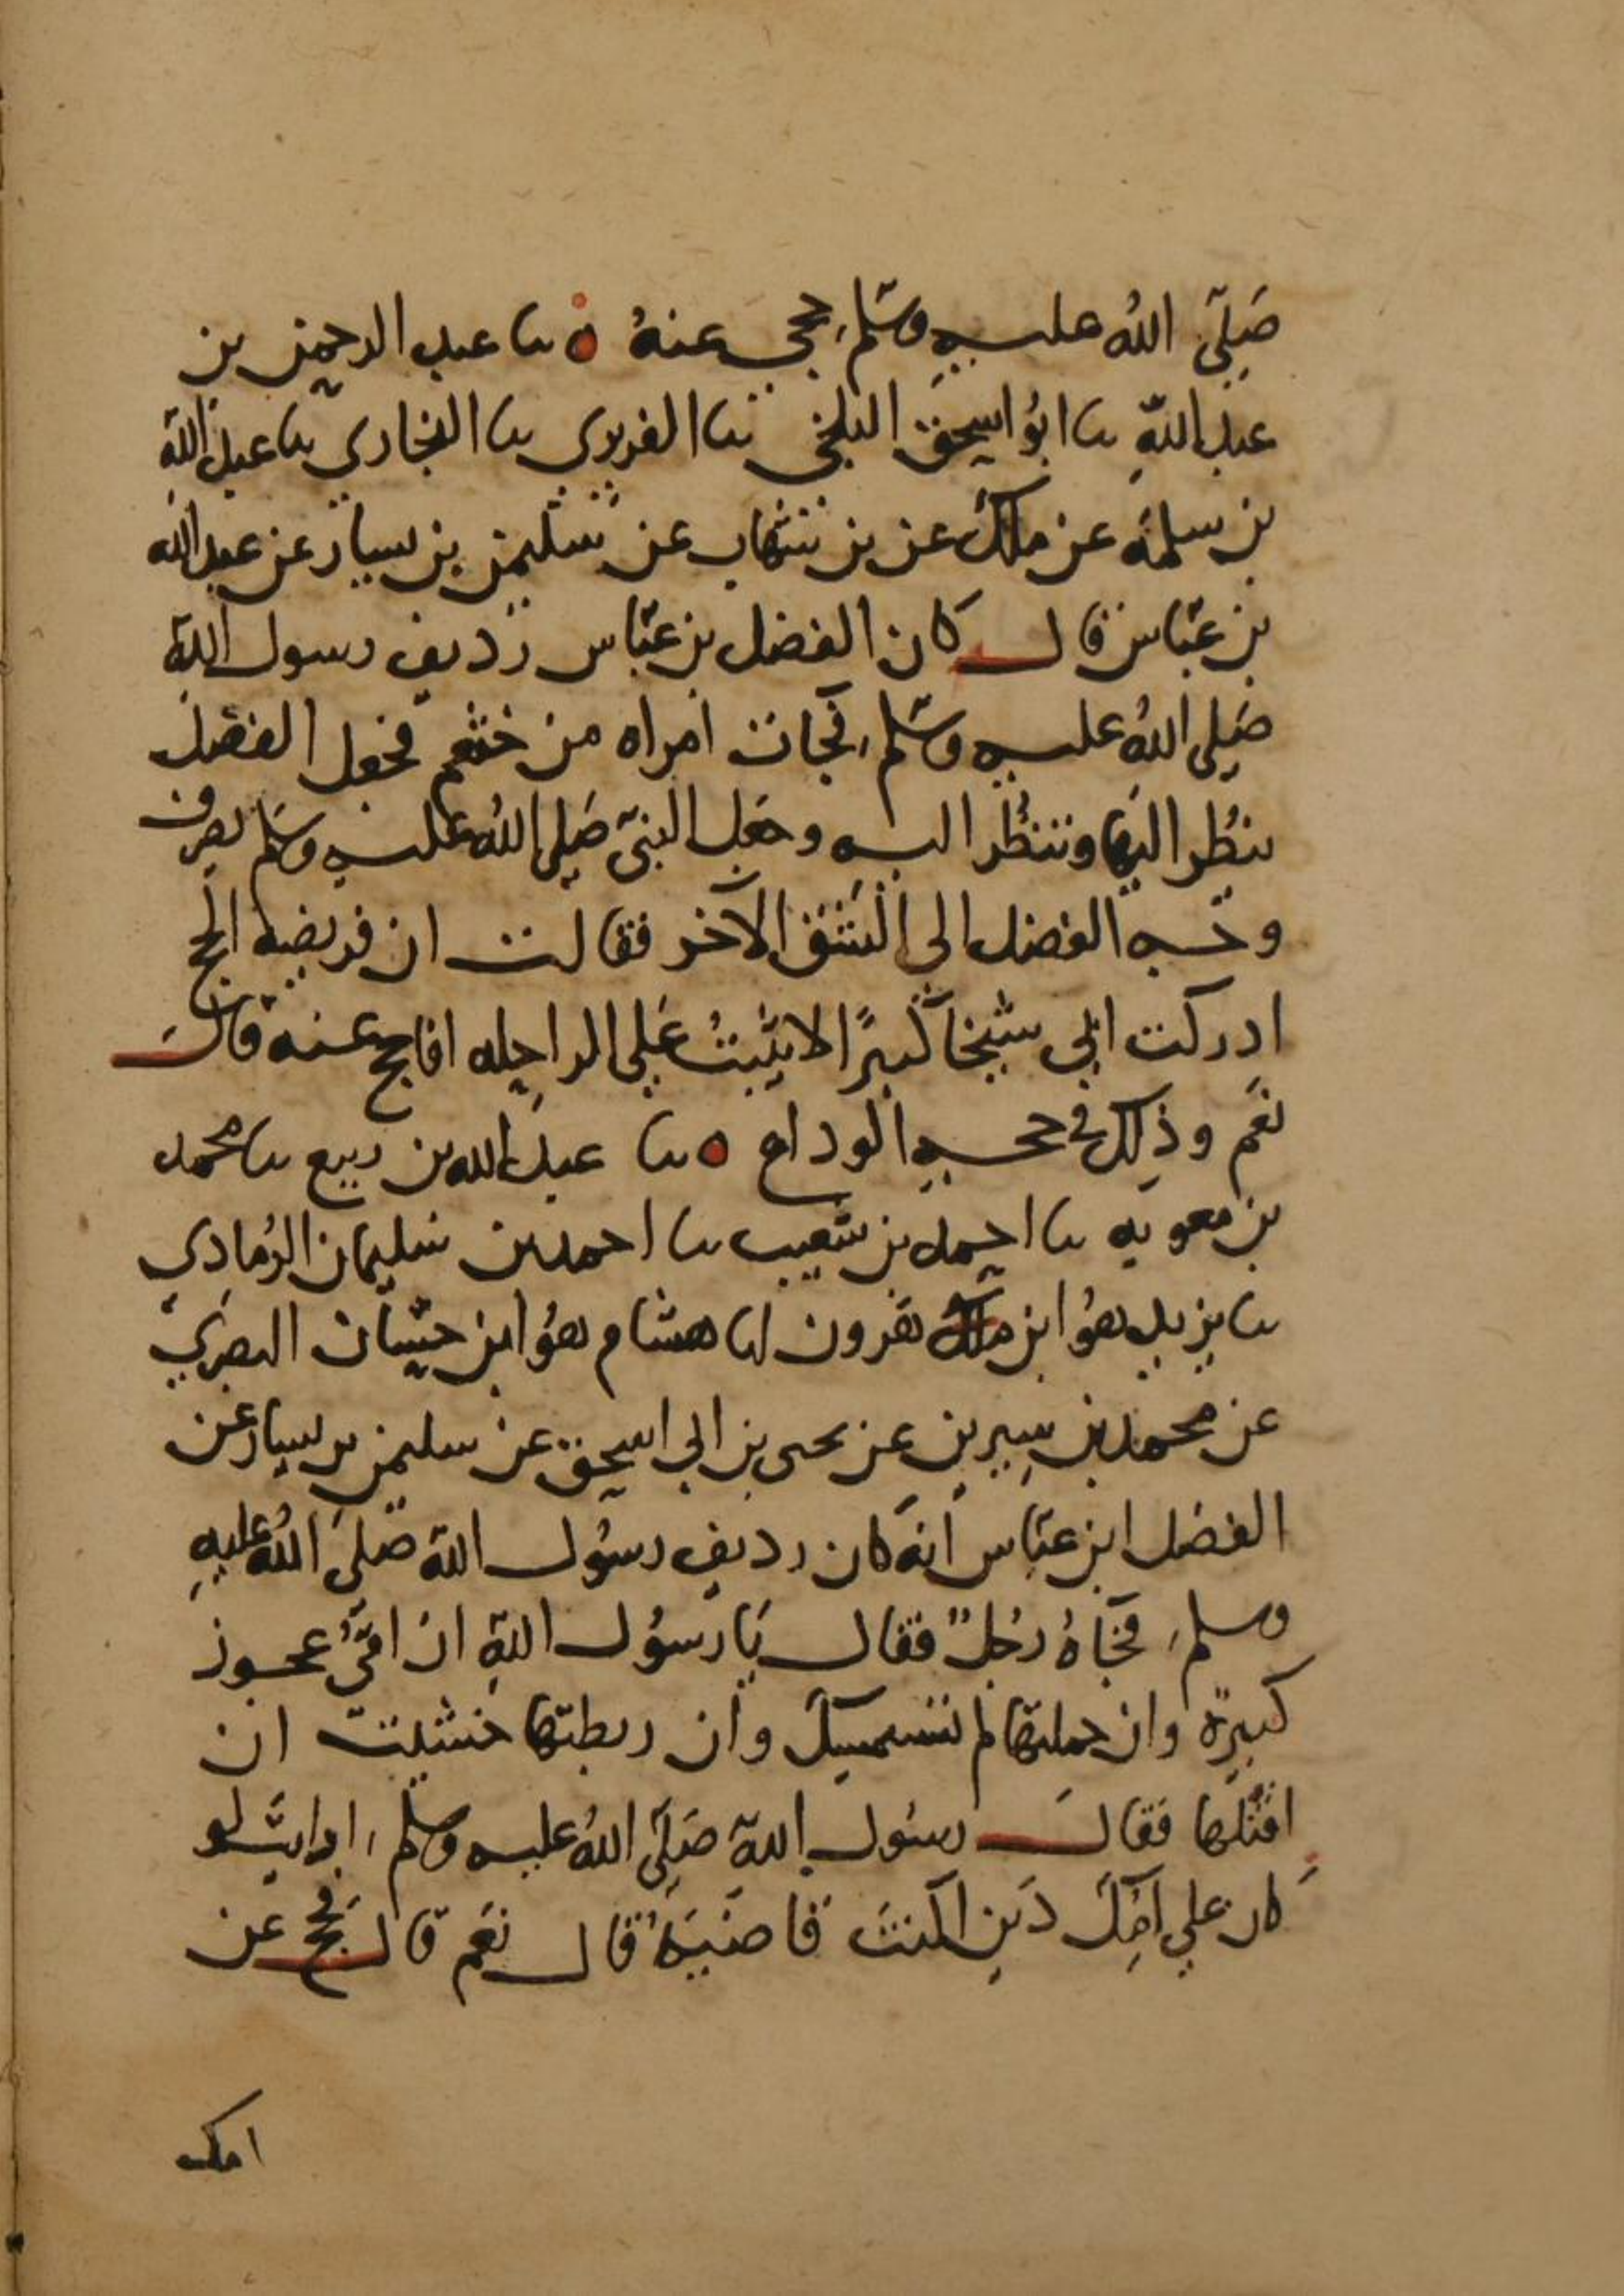 صَلّى اللهُ عليه وسَلّم، حجي عنهُ ه نا عبد الرحمن بن
عبد اللهِ نا ابُو اسحق البلخي نا الفربري نا البخاري نا عبد الله
بن سلمة عن ملك عن بن شهاب عن سليمن بن يسار عن عبد الله
بن عبّاس قال كان الفضل بن عبّاس رديف رسول الله
صَلى اللهُ عليه وسَلّم، فجات امراه من خثعم فجعل الفضل
ينظُر اليها وتنظُر اليه وجعل النبيّ صَلى اللهُ عليه وسَلم يصرف
وجه الفضل الى الشق الآخر فقالت ان فريضة الحج
ادركت ابي شيخاً كبيرًا لا يثبتُ عَلى الراحله افاحج عنه قال
نعَم وذلك في حجه الوداع ه نا عبد الله بن ربيع نا محمد
بن معويه نا احمد بن شعيب نا احمد بن سليمان الرُهادي
نا يزيد هُو ابن هرون انا هشام هُو ابن حسّان البصري
عن محمد بن سِيرين عن يحيى بن ابي اسحق عن سليمن بن يسار عن
الفضل ابن عبّاس انه كان رديف رسُول الله صَلى اللهُ عليهِ
وسلم، فجَاهُ رجُلٌ فقال يَا رسُول اللهِ ان امّيُ عجوز
كبيرةً وان حملتها لم تستمسِك وان ربطتها خشيت ان
اقتُلها فقال رسُول الله صَلّى اللهُ عليه وسلم، ارايتَ لو
كان علي امِّكَ دَين اكنتَ قاضيَهُ قال نعَم قال فَحُج عن
امك